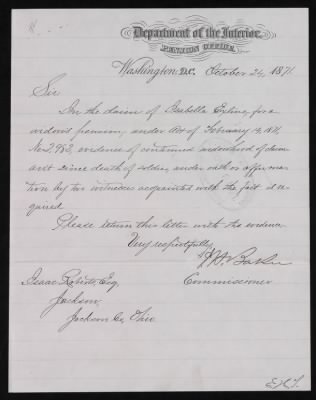 Department of the Interior,
PENSION OFFICE,
Washington, D.C. October 24, 1871
Sir
In the claim of Isabella Exline, for a
widow's pension, under Act of February 14, 1871,
No 2,982, evidence of continued widowhood of claim-
ant since death of soldier, under oath or affirma-
tion by two witnesses acquainted with the fact is re-
quired
Please return this letter with the evidence
Very respectfully
Baker
Commissioner
Isaac Roberts, Esq.
Jackson,
Jackson Co, Ohio